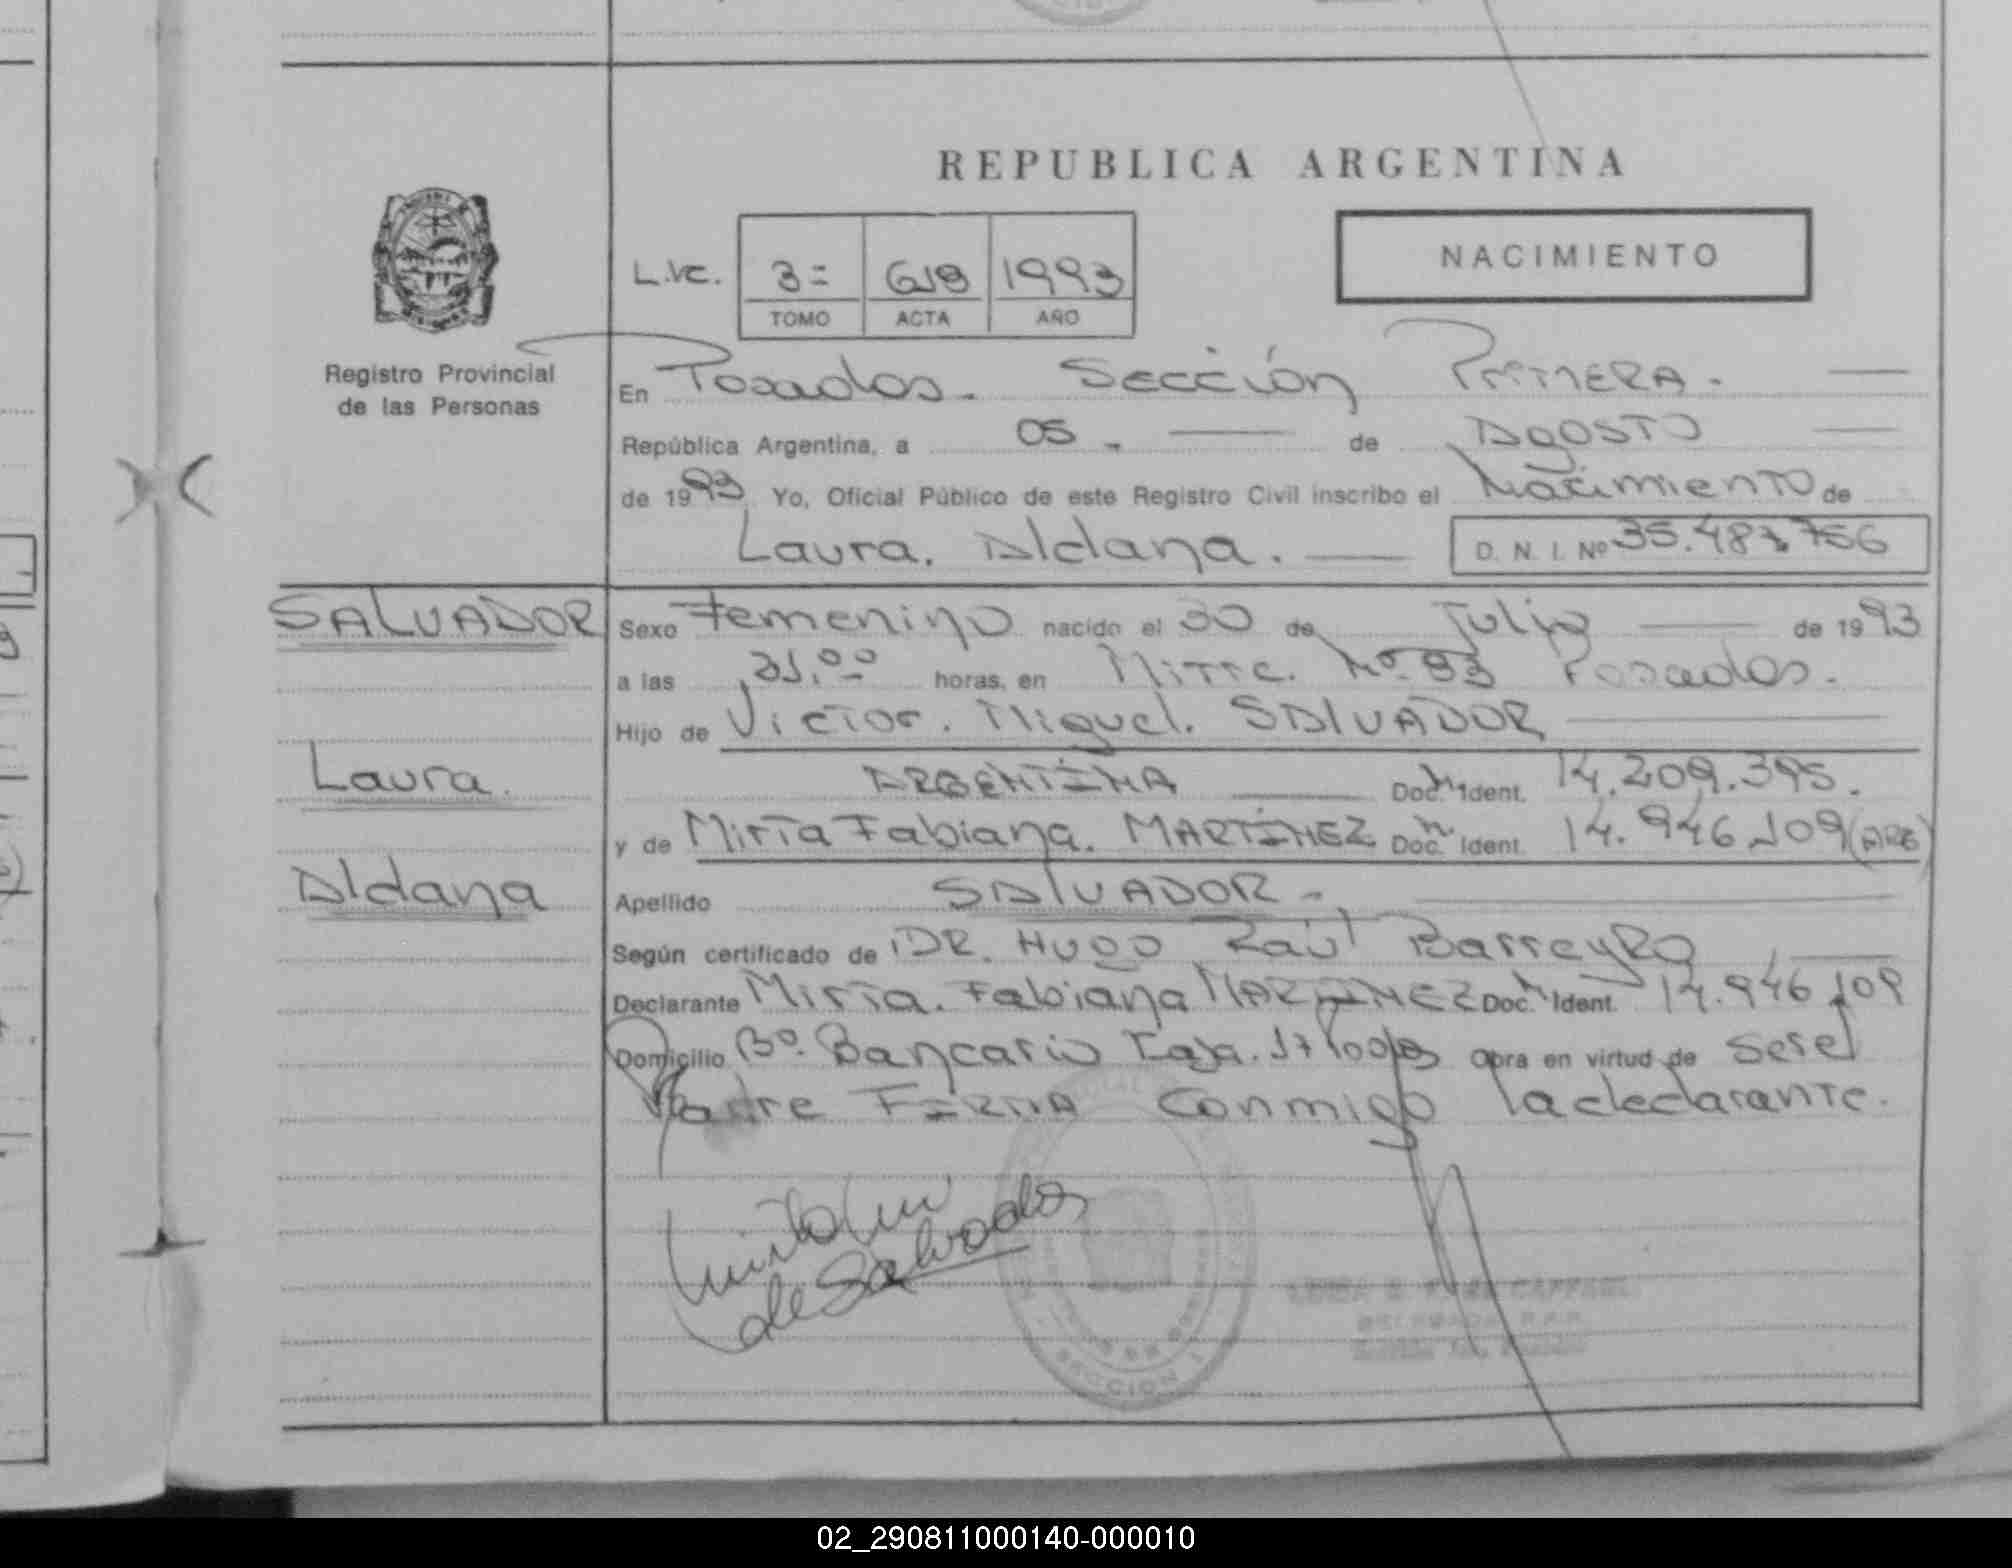 REPUBLICA ARGENTINA
NACIMIENTO
3= 1993
TOMO ACTA AÑO
Registro Provincial
de las Personas
En Posadas. Sección PRIMERA.
República Argentina, a 05. de Agosto
de 1993 Yo, Oficial Público de este Registro Civil inscribo el Nacimiento de
Laura. Aldana. D. N. I. Nº 35.487.756
SALVADOR
Laura.
Aldana
Sexo Femenino nacido el 30 de Julio de 1993
a las horas, en Mitre. Nº. 93 Posadas.
Hijo de Victor. Miguel. SALVADOR
ARGENTINA Doc. N. Ident. 14.209.395.
y de Mirta Fabiana. MARTINEZ Doc. N. Ident. 14.946.109 (ARG)
Apellido SALVADOR.
Según certificado de DR. HUGO Raúl BarreyRo
Declarante Mirta. Fabiana MARTINEZ Doc. N. Ident. 14.946.109
Domicilio Bº. Bancario Obra en virtud de ser el
Padre FIRMA Conmigo la declarante.
de Salvador
SECCION 1
02_290811000140-000010